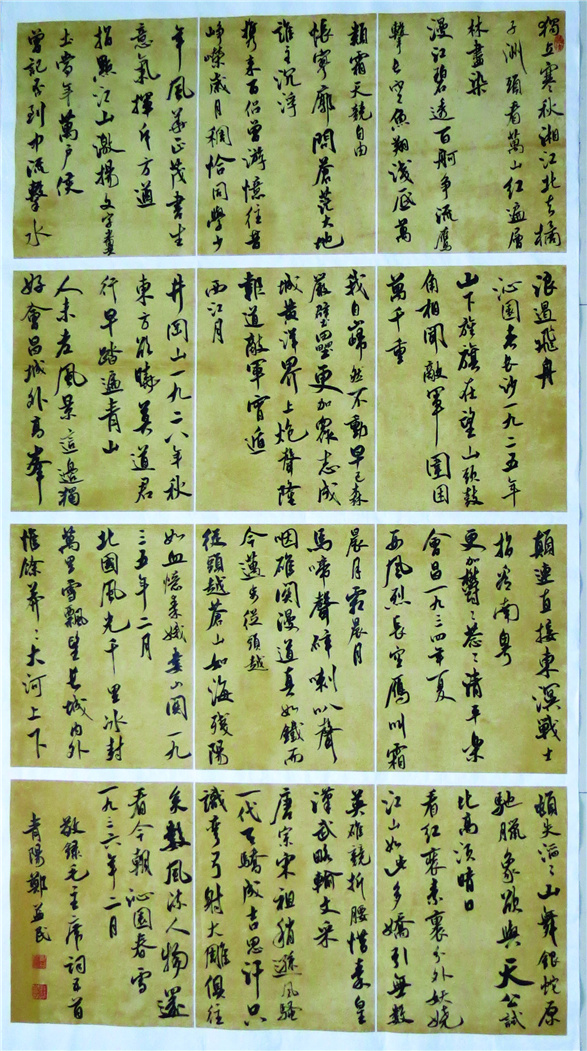 獨立寒秋湘江北去橘
子洲頭看萬山紅遍層
林盡染
漫江碧透百舸爭流鷹
擊長空魚翔淺底萬
類霜天競自由
悵寥廓問蒼茫大地
誰主沉浮
攜來百侶曾游憶往昔
崢嶸歲月稠恰同學少
年風華正茂書生
意氣揮斥方遒
指點江山激揚文字糞
土當年萬戶侯
曾記否到中流擊水
浪遏飛舟
沁園春長沙一九二五年
山下旌旗在望山頭鼓
角相聞敵軍圍困
萬千重
我自巋然不動早已森
嚴壁壘更加眾志成
城黃洋界上炮聲隆
報道敵軍宵遁
西江月
井岡山一九二八年秋
東方欲曉莫道君
行早踏遍青山
人未老風景這邊獨
好會昌城外高峰
顛連直接東溟戰士
指看南粵
更加鬱々蔥々清平樂
會昌一九三四年夏
西風烈長空雁叫霜
晨月霜晨月
馬蹄聲碎喇叭聲
咽雄關漫道真如鐵而
今邁步從頭越
從頭越蒼山如海殘陽
如血憶秦娥婁山關一九
三五年二月
北國風光千里冰封
萬里雪飄望長城內外
惟餘莽々大河上下
頓失滔々山舞銀蛇原
馳臘象欲與天公試
比高須晴日
看紅裹素裹分外妖嬈
江山如此多嬌引無數
英雄競折腰惜秦皇
漢武略輸文采
唐宗宋祖稍遜風騷
一代天驕成吉思汗只
識彎弓射大雕俱往
矣數風流人物還
看今朝沁園春雪
一九三六年二月
敬錄毛主席詞五首
青陽鄭益民